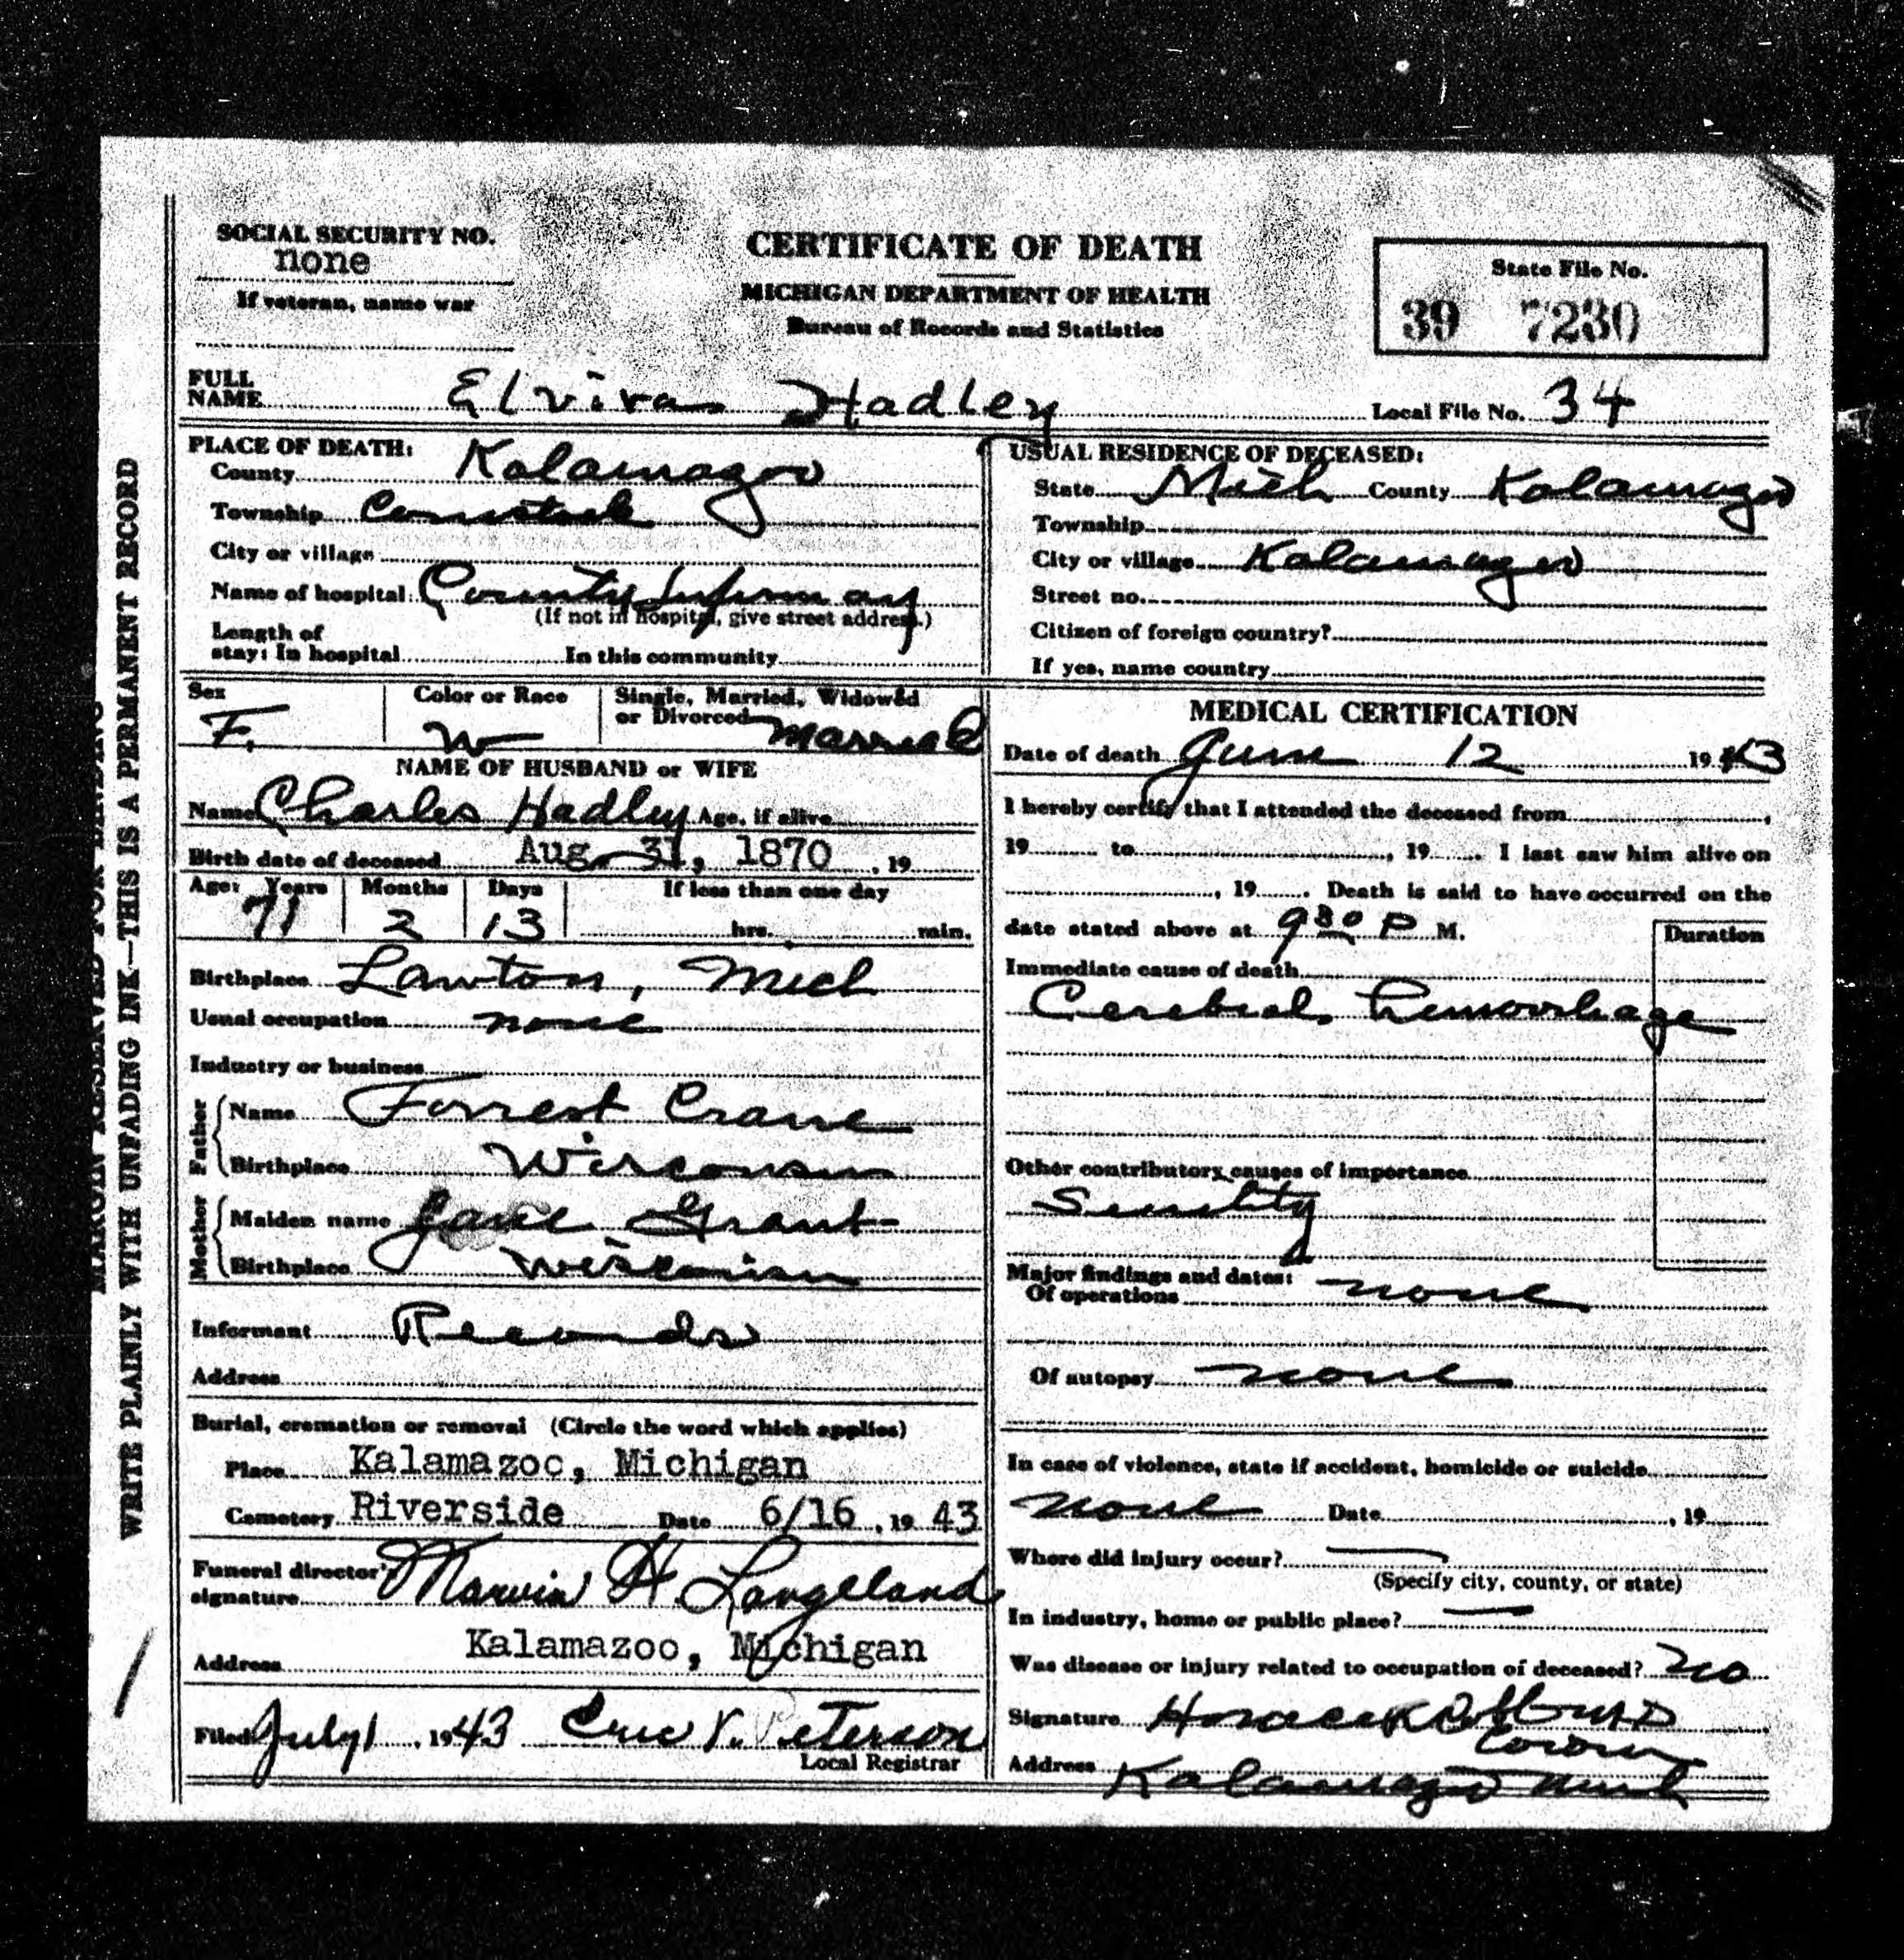 SOCIAL SECURITY NO.
none
If veteran, name war
CERTIFICATE OF DEATH
MICHIGAN DEPARTMENT OF HEALTH
Bureau of Records and Statistics
State File No.
39 7230
FULL NAME Elvira Hadley Local File No. 34
PLACE OF DEATH:
County Kalamazoo
Township Comstock
City or village
Name of hospital: County Infirmary
(If not in hospital, give street address.)
Length of
stay: In hospital In this community
USUAL RESIDENCE OF DECEASED:
State Mich County Kalamazoo
Township
City or village Kalamazoo
Street no.
Citizen of foreign country?
If yes, name country
Sex F.
Color or Race W
Single, Married, Widowed
or Divorced Married
NAME OF HUSBAND or WIFE
Name Charles Hadley Age, if alive
Birth date of deceased Aug 31, 1870, 19
Age: Years 71 Months 2 Days 13 If less than one day
hrs. min.
Birthplace Lawton, Mich
Usual occupation none
Industry or business
Father Name Forrest Crane
Birthplace Wisconsin
Mother Maiden name Jane Grant
Birthplace Wisconsin
Informant Records
Address
Burial, cremation or removal (Circle the word which applies)
Place Kalamazoo, Michigan
Cemetery Riverside Date 6/16, 19 43
Funeral director's
signature Marvin H. Langeland
Address Kalamazoo, Michigan
Filed July 1, 1943 Eric V. Peterson
Local Registrar
MEDICAL CERTIFICATION
Date of death June 12 1943
I hereby certify that I attended the deceased from ,
19 to , 19 . I last saw him alive on
, 19 . Death is said to have occurred on the
date stated above at 9 30 P M.
Duration
Immediate cause of death
Cerebral hemorrhage
Other contributory causes of importance
Senility
Major findings and dates:
Of operations none
Of autopsy none
In case of violence, state if accident, homicide or suicide
none Date , 19
Where did injury occur?
(Specify city, county, or state)
In industry, home or public place?
Was disease or injury related to occupation of deceased? no
Signature MD
Coroner
Address Kalamazoo Mich
MARGIN RESERVED FOR BINDING
WRITE PLAINLY WITH UNFADING INK—THIS IS A PERMANENT RECORD